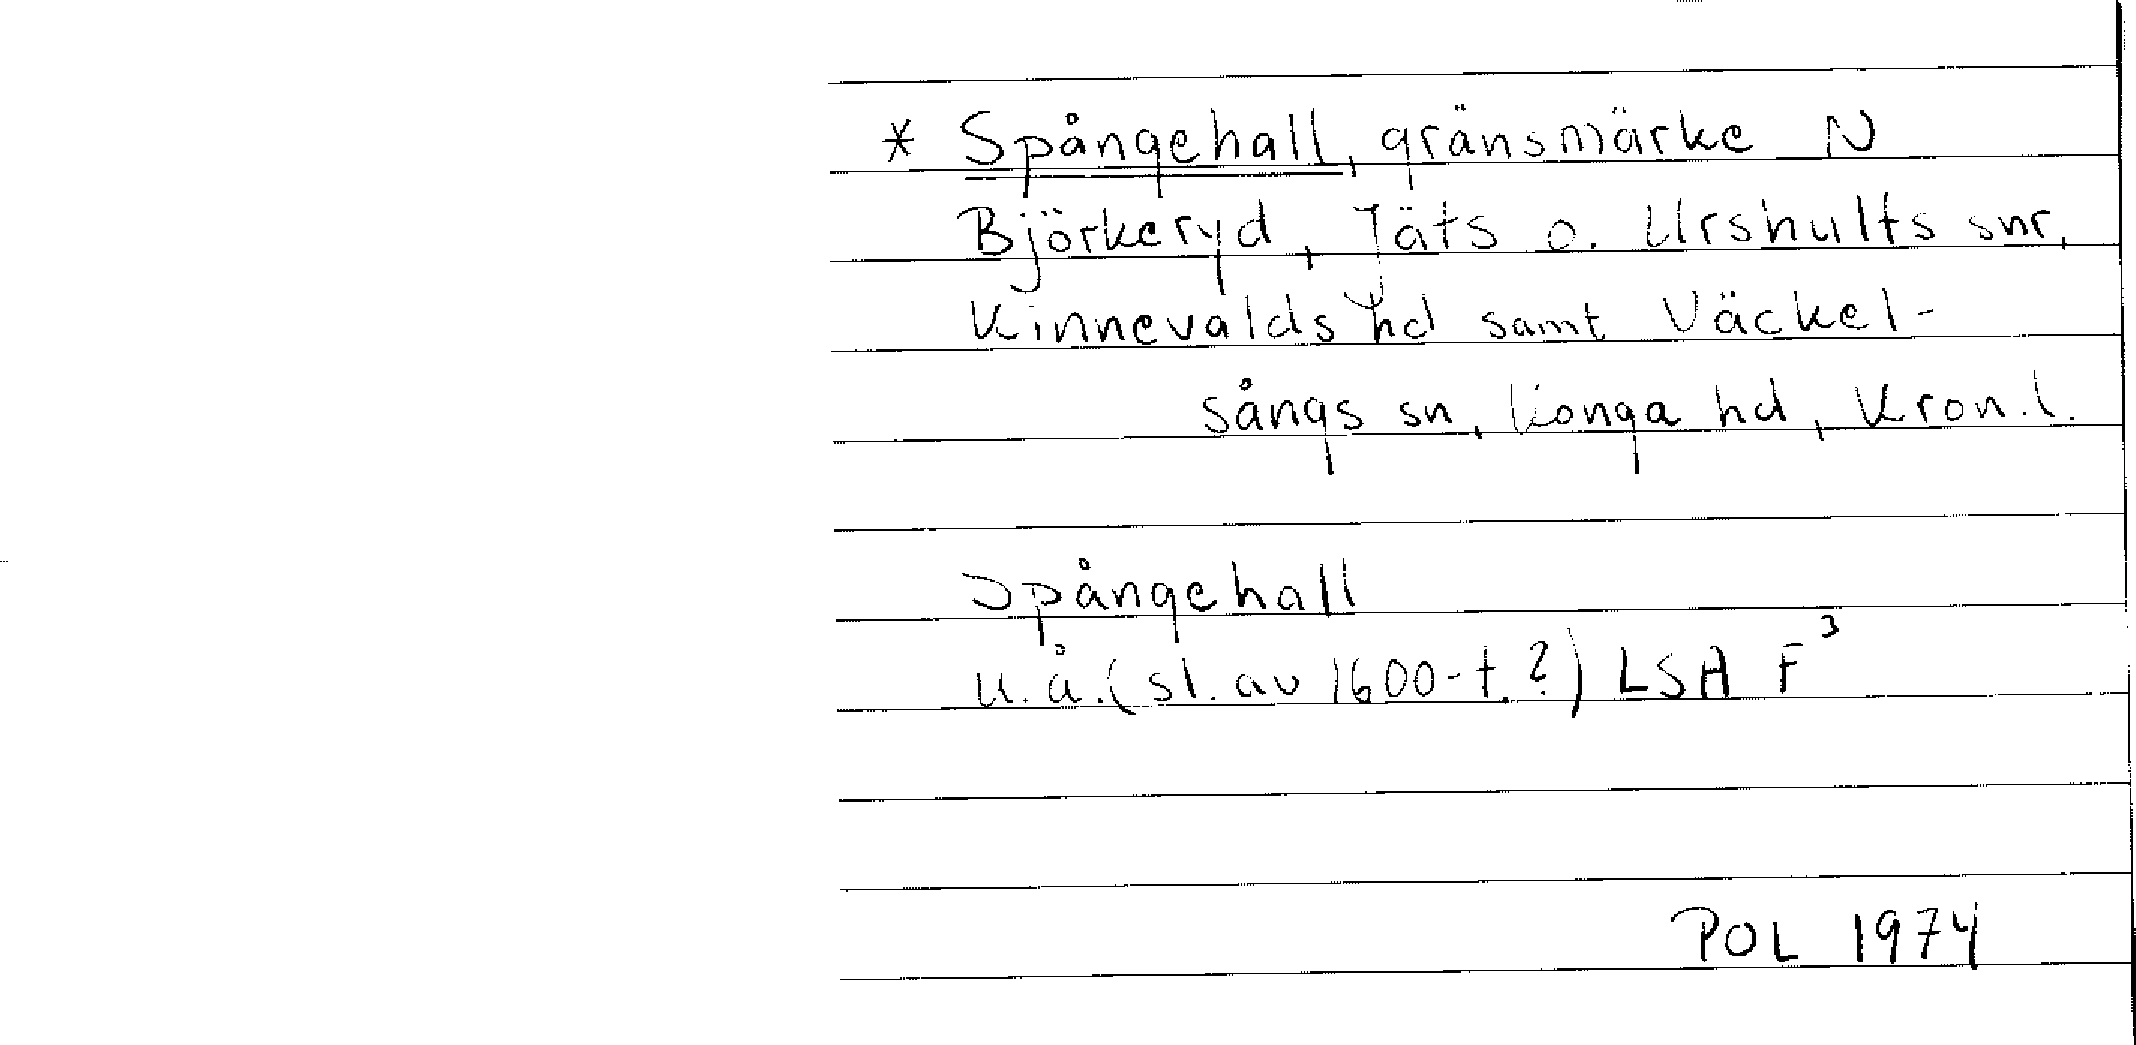 * Spångehall, gränsmärke N
Björkeryd, Jäts o. Urshults snr,
Kinnevalds hd samt Väckel-
sångs sn, Konga hd, Kron.l.
Spångehall
u.å. (sl. av 1600-t.?) LSA F³
POL 1974